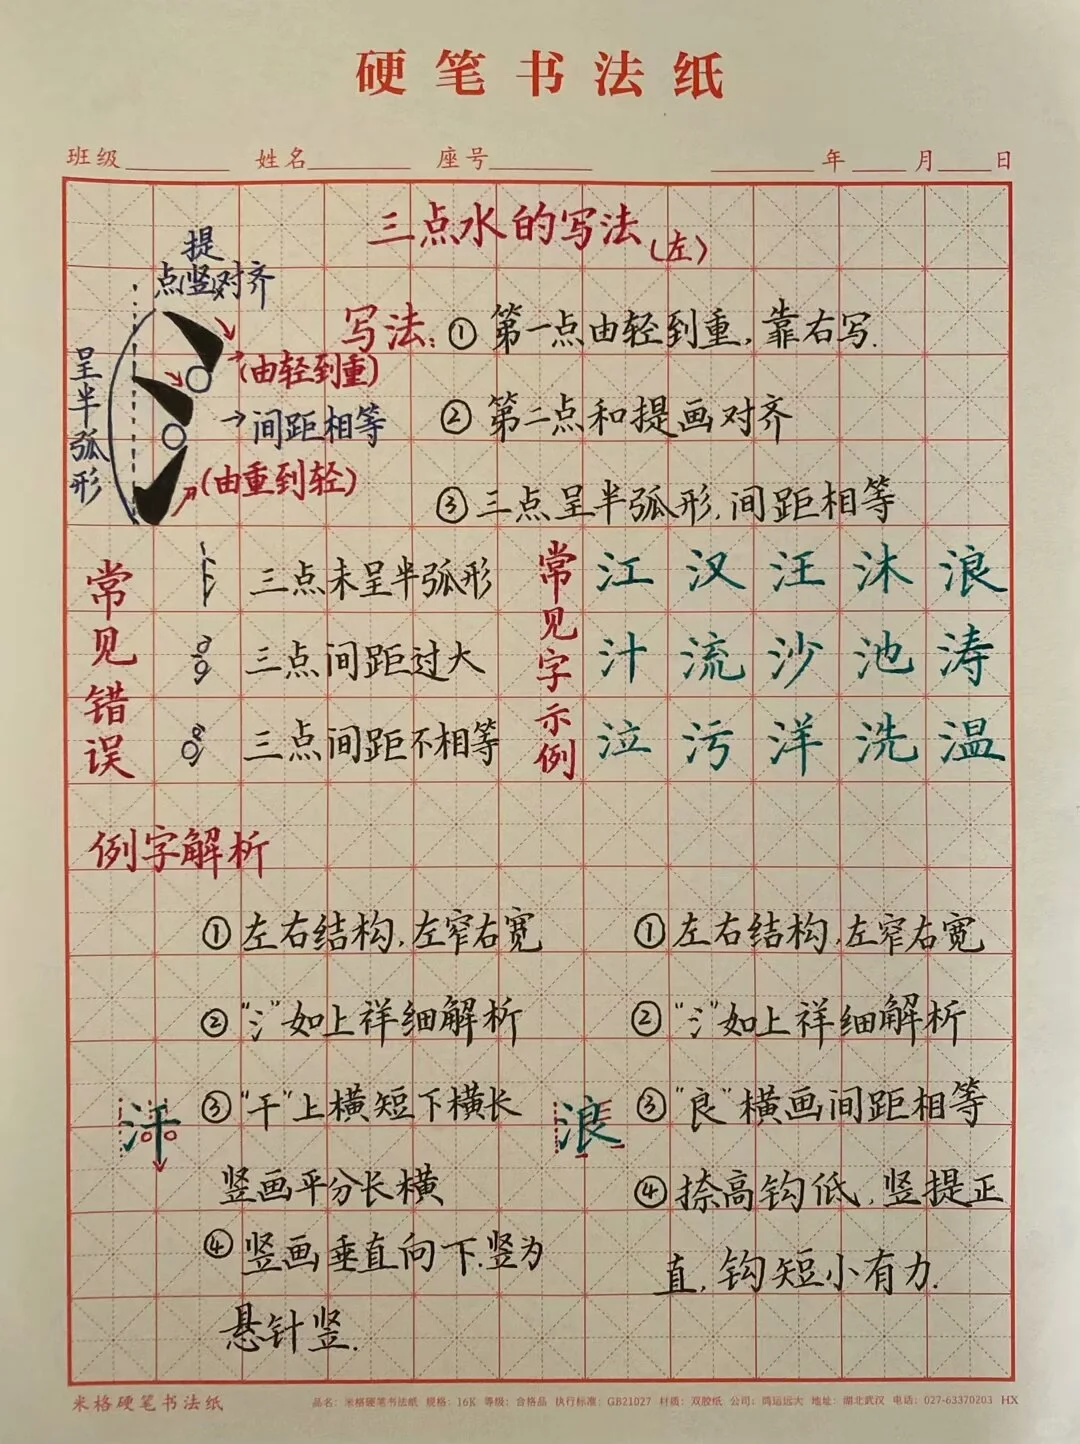 硬笔书法纸
班级 姓名 座号 年 月 日
三点水的写法(左)
提
点竖对齐
呈半弧形
(由轻到重)
→间距相等
(由重到轻)
写法:①第一点由轻到重,靠右写.
②第二点和提画对齐
③三点呈半弧形,间距相等
常见错误
三点未呈半弧形
三点间距过大
三点间距不相等
常见字示例
江 汉 汪 沐 浪
汁 流 沙 池 涛
泣 污 洋 洗 温
例字解析
汗
①左右结构,左窄右宽
②“氵”如上祥细解析
③“干”上横短下横长
竖画平分长横
④竖画垂直向下.竖为
悬针竖.
浪
①左右结构,左窄右宽
②“氵”如上祥细解析
③“良”横画间距相等
④捺高钩低,竖提正
直,钩短小有力.
米格硬笔书法纸
品名:米格硬笔书法纸 规格:16K 等级:合格品 执行标准:GB21027 材质:双胶纸 公司:鸿运远大 地址:湖北武汉 电话:027-63370203 HX